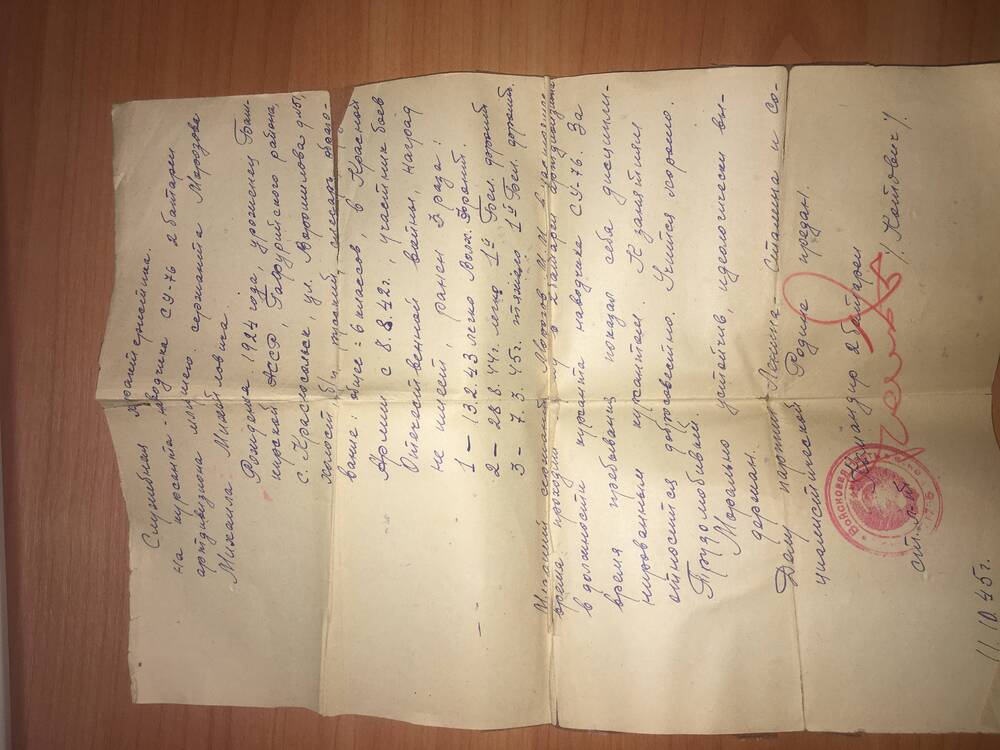 Служебная характеристика.
На курсанта-наводчика СУ-76 2 батареи
артдивизиона младшего сержанта Морозова
Михаила Михайловича.
Рождения 1924 года, уроженец Баш-
кирской АССР, Гафурийского района,
с. Красноусольск, ул. Ворошилова д
холост, б/п, русский, слесарь, образо-
вание: общее: 6 классов, в Красной
Армии с 8.8.42г., участник боев
Отечественной войны, наград
не имеет, ранен 3 раза:
1 – 13.2.43 легко Волх. Фронт.
2 – 28.8.44г. легко 1й Бел. фронт
3 – 7.3.45г. тяжело 1й Бел. фронт.
Младший сержант Морозов М.М. в настоящее
время проходит в 2 батареи артдивизиона
в должности курсанта наводчика СУ-76. За
время пребывания показал себя дисципли-
нированным курсантом. К занятиям
относится добросовестно. Учится хорошо.
Трудолюбивый.
Морально устойчив, идеологически вы-
держан.
Делу партии Ленина-Сталина и со-
циалистической Родине предан.
Командир 2 батареи
ст. л-нт /Котович/.
Войсковая
11.10.45г.